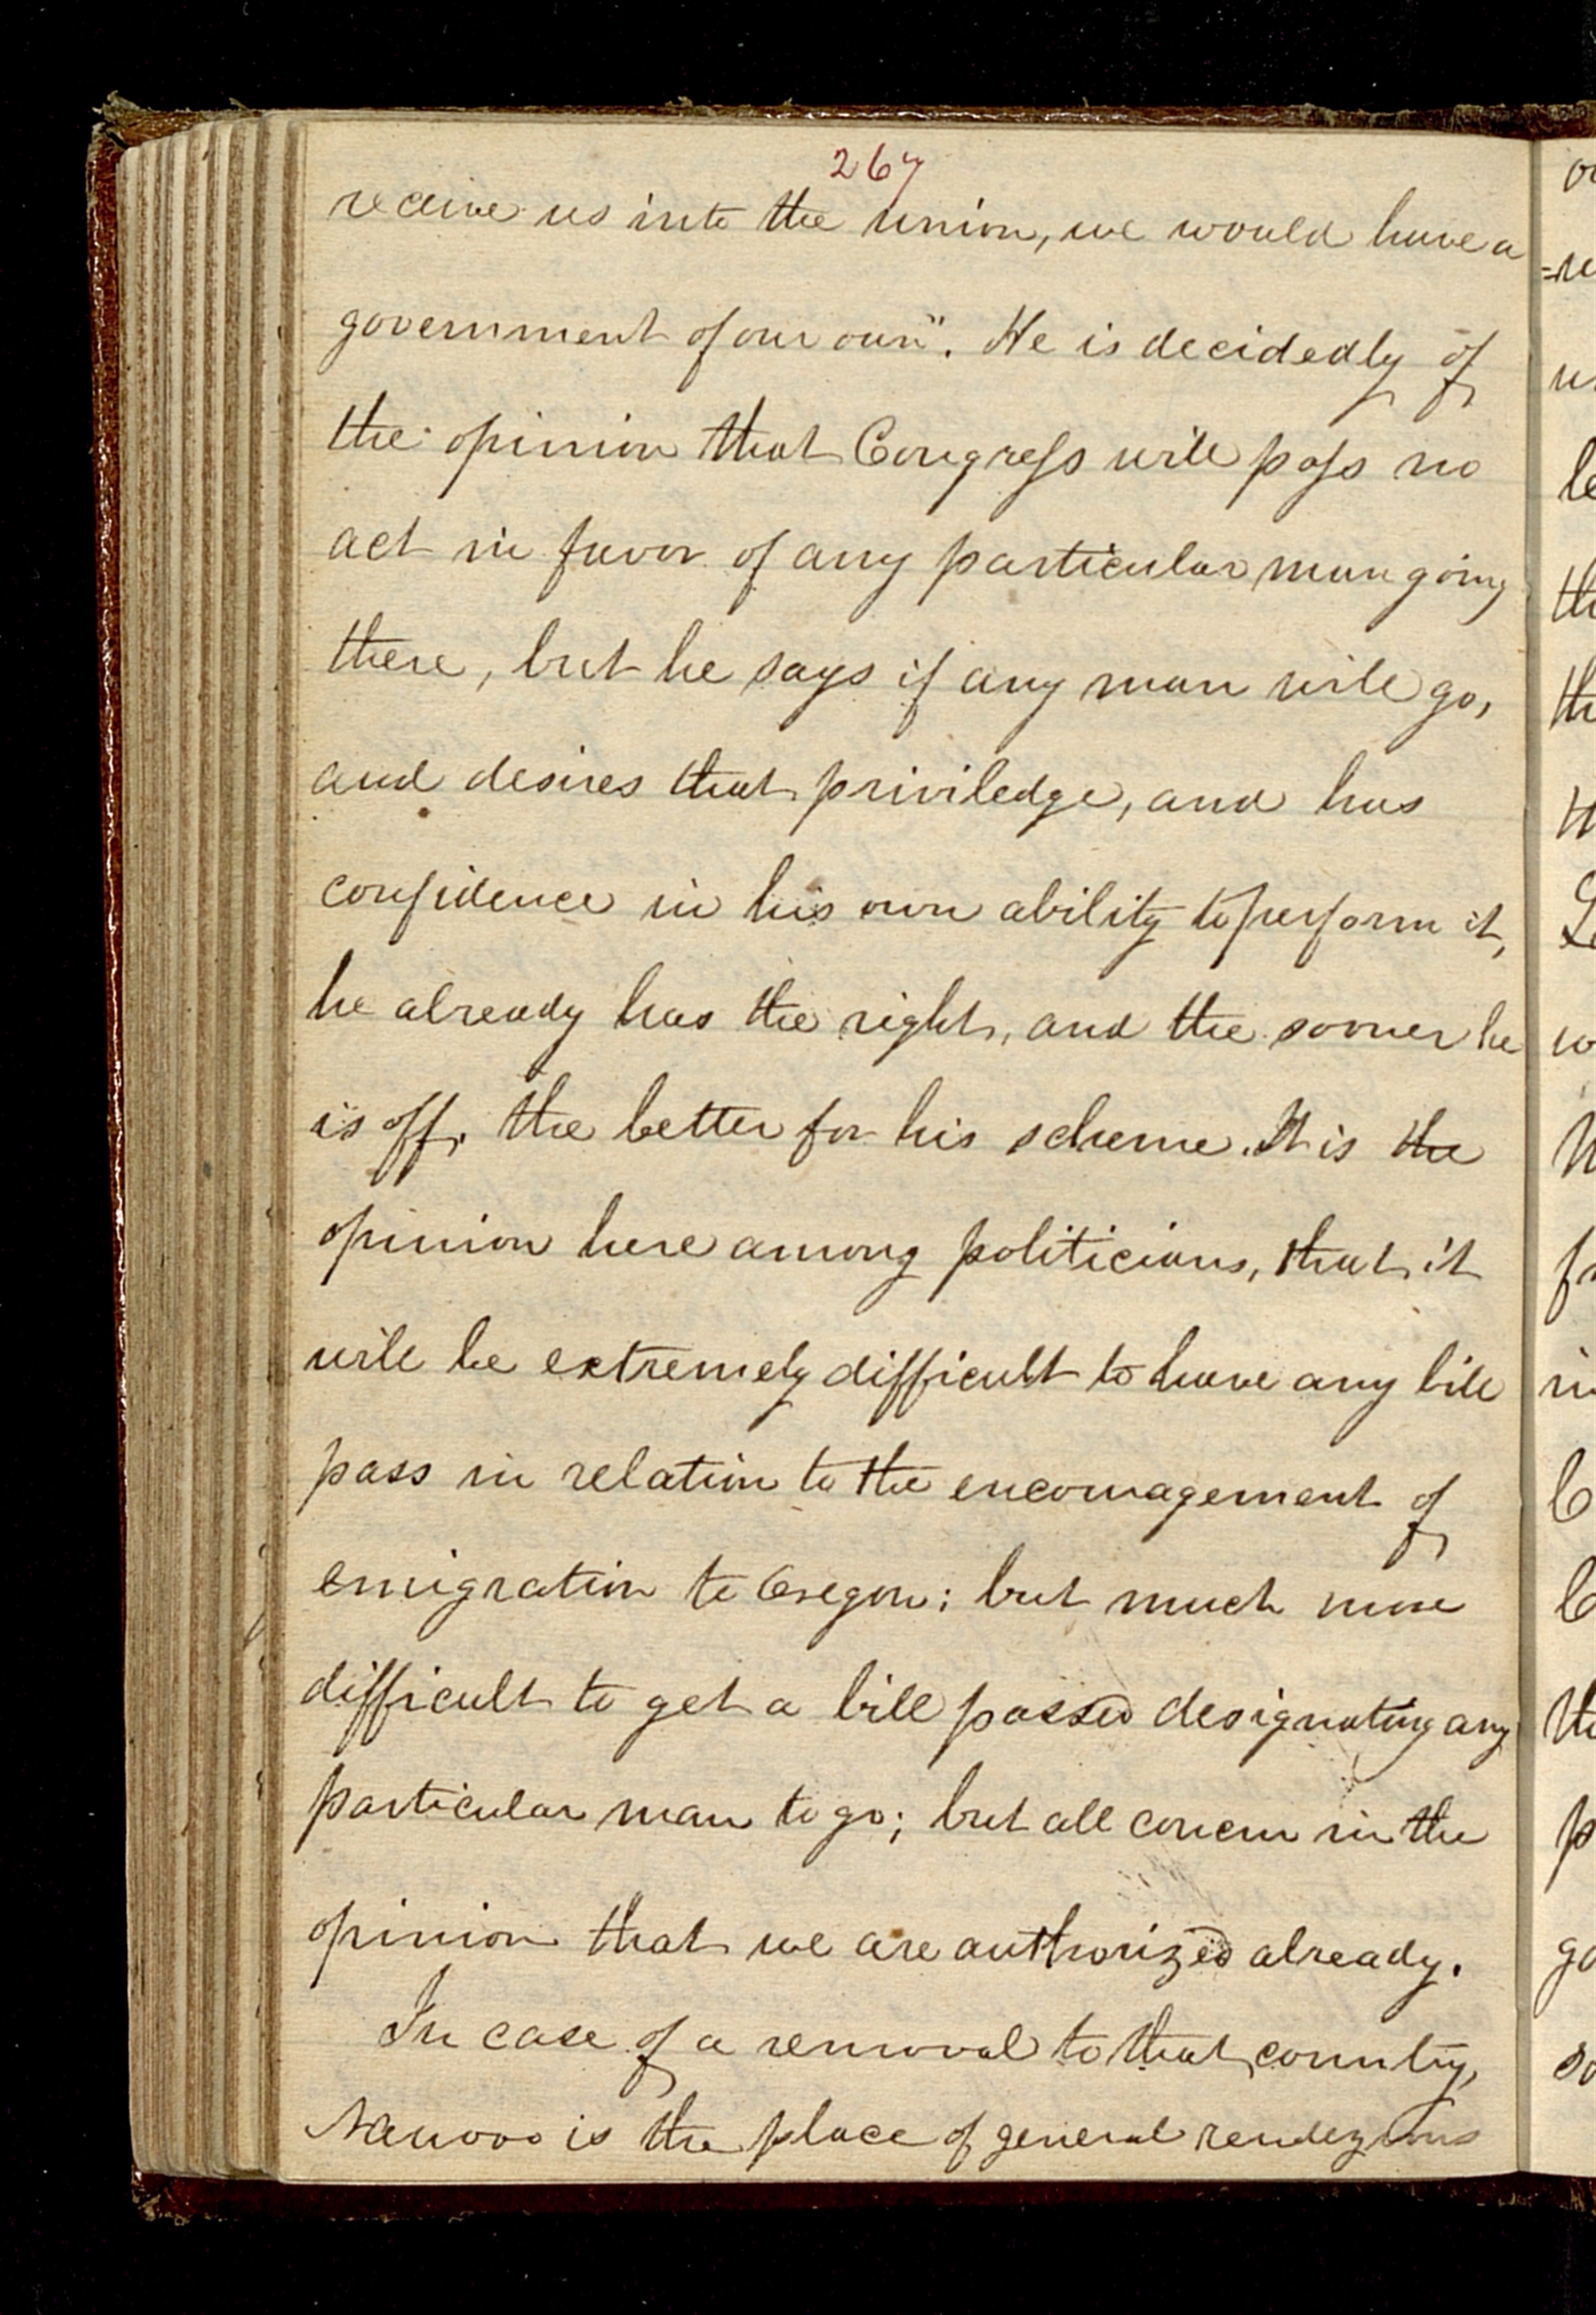 267
receive us into the union, we would have a
government of our own". He is decidedly of
the opinion that Congress will pass no
act in favor of any particular man going
there, but he says if any man will go,
and desires that priviledge, and has
confidence in his own ability to perform it,
he already has the right, and the sooner he
is off, the better for his scheme. It is the
opinion here among politicians, that it
will be extremely difficult to have any bill
pass in relation to the encouragement of
emigration to Oregon; but much more
difficult to get a bill passed designating any
particular man to go; but all concur in the
opinion that we are authorized already.
In case of a removal to that country,
Nauvoo is the place of general rendezvous